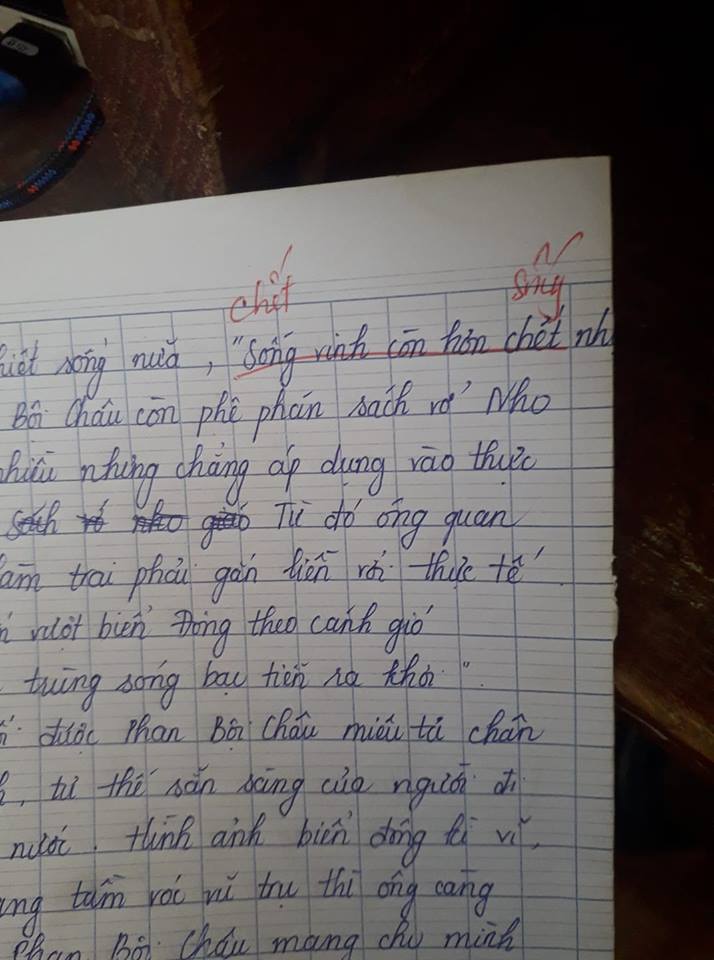 chết sống
iết sống nữa, "Sống vinh còn hơn chết nh
Bội Châu còn phê phán sách vở Nho
hiều nhưng chẳng áp dụng vào thực
sách vở nho giáo Từ đó ông quan
làm trai phải gắn liền với thực tế
vượt biển Đông theo cánh gió
trùng sóng bạc tiễn ra khơi".
được Phan Bội Châu miêu tả chân
h, tư thế sẵn sàng của người đi
nước. Hình ảnh biển đông kì vĩ,
ang tầm với vũ trụ thì ông càng
Phan Bội Châu mang chủ mình